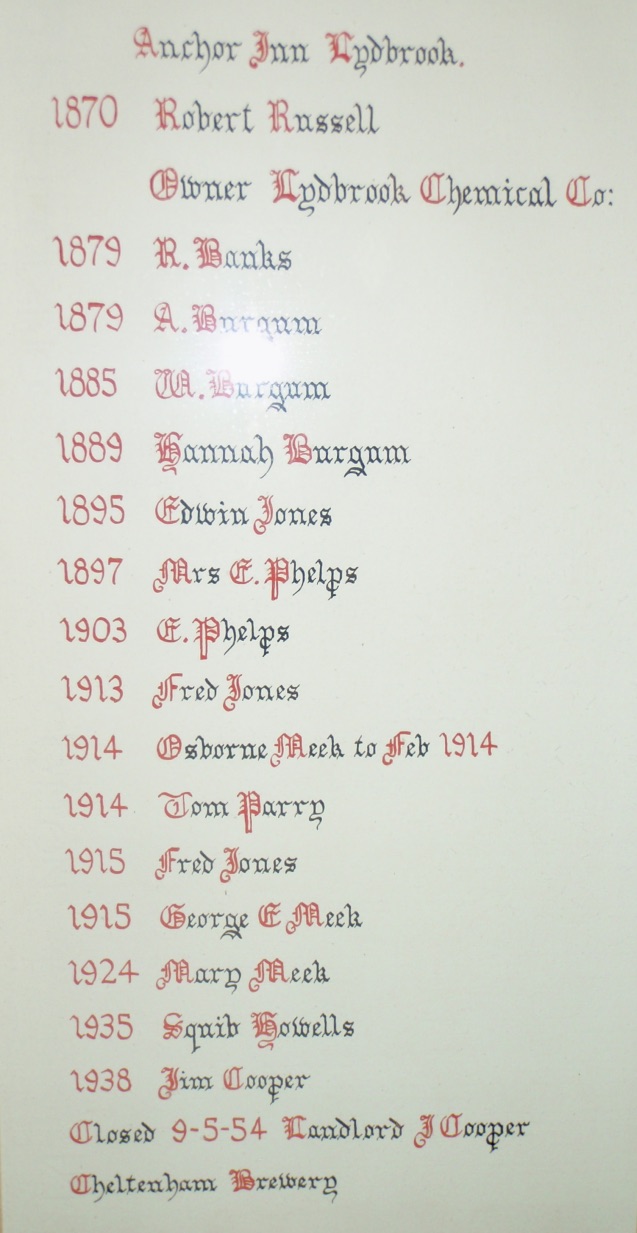 Anchor Inn Lydbrook.
1870 Robert Russell
Owner Lydbrook Chemical Co:
1879 R. Banks
1879 A. Burgum
1885 W. Burgum
1889 Hannah Burgum
1895 Edwin Jones
1897 Mrs E. Phelps
1903 E. Phelps
1913 Fred Jones
1914 Osborne Meek to Feb 1914
1914 Tom Parry
1915 Fred Jones
1915 George E Meek
1924 Mary Meek
1935 Squib Howells
1938 Jim Cooper
Closed 9-5-54 Landlord J Cooper
Cheltenham Brewery